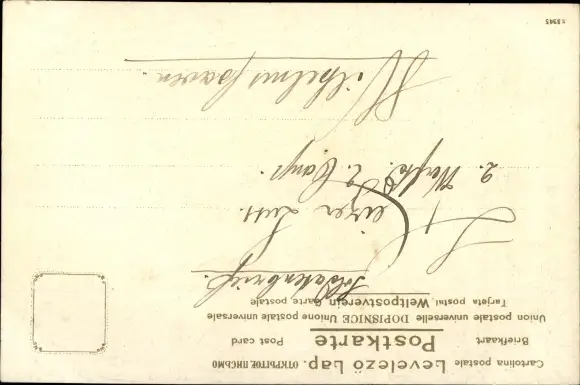 Cartolina postale Levelező Lap. ОТКРЫТОЕ ПИСЬМО
Briefkaart Postkarte Post card
Union postale universelle DOPISNICE Unione postale universale
Tarjeta postal. Weltpostverein Carte postale
Soldatenbrief.
2. Comp.
Wilhelmshaven